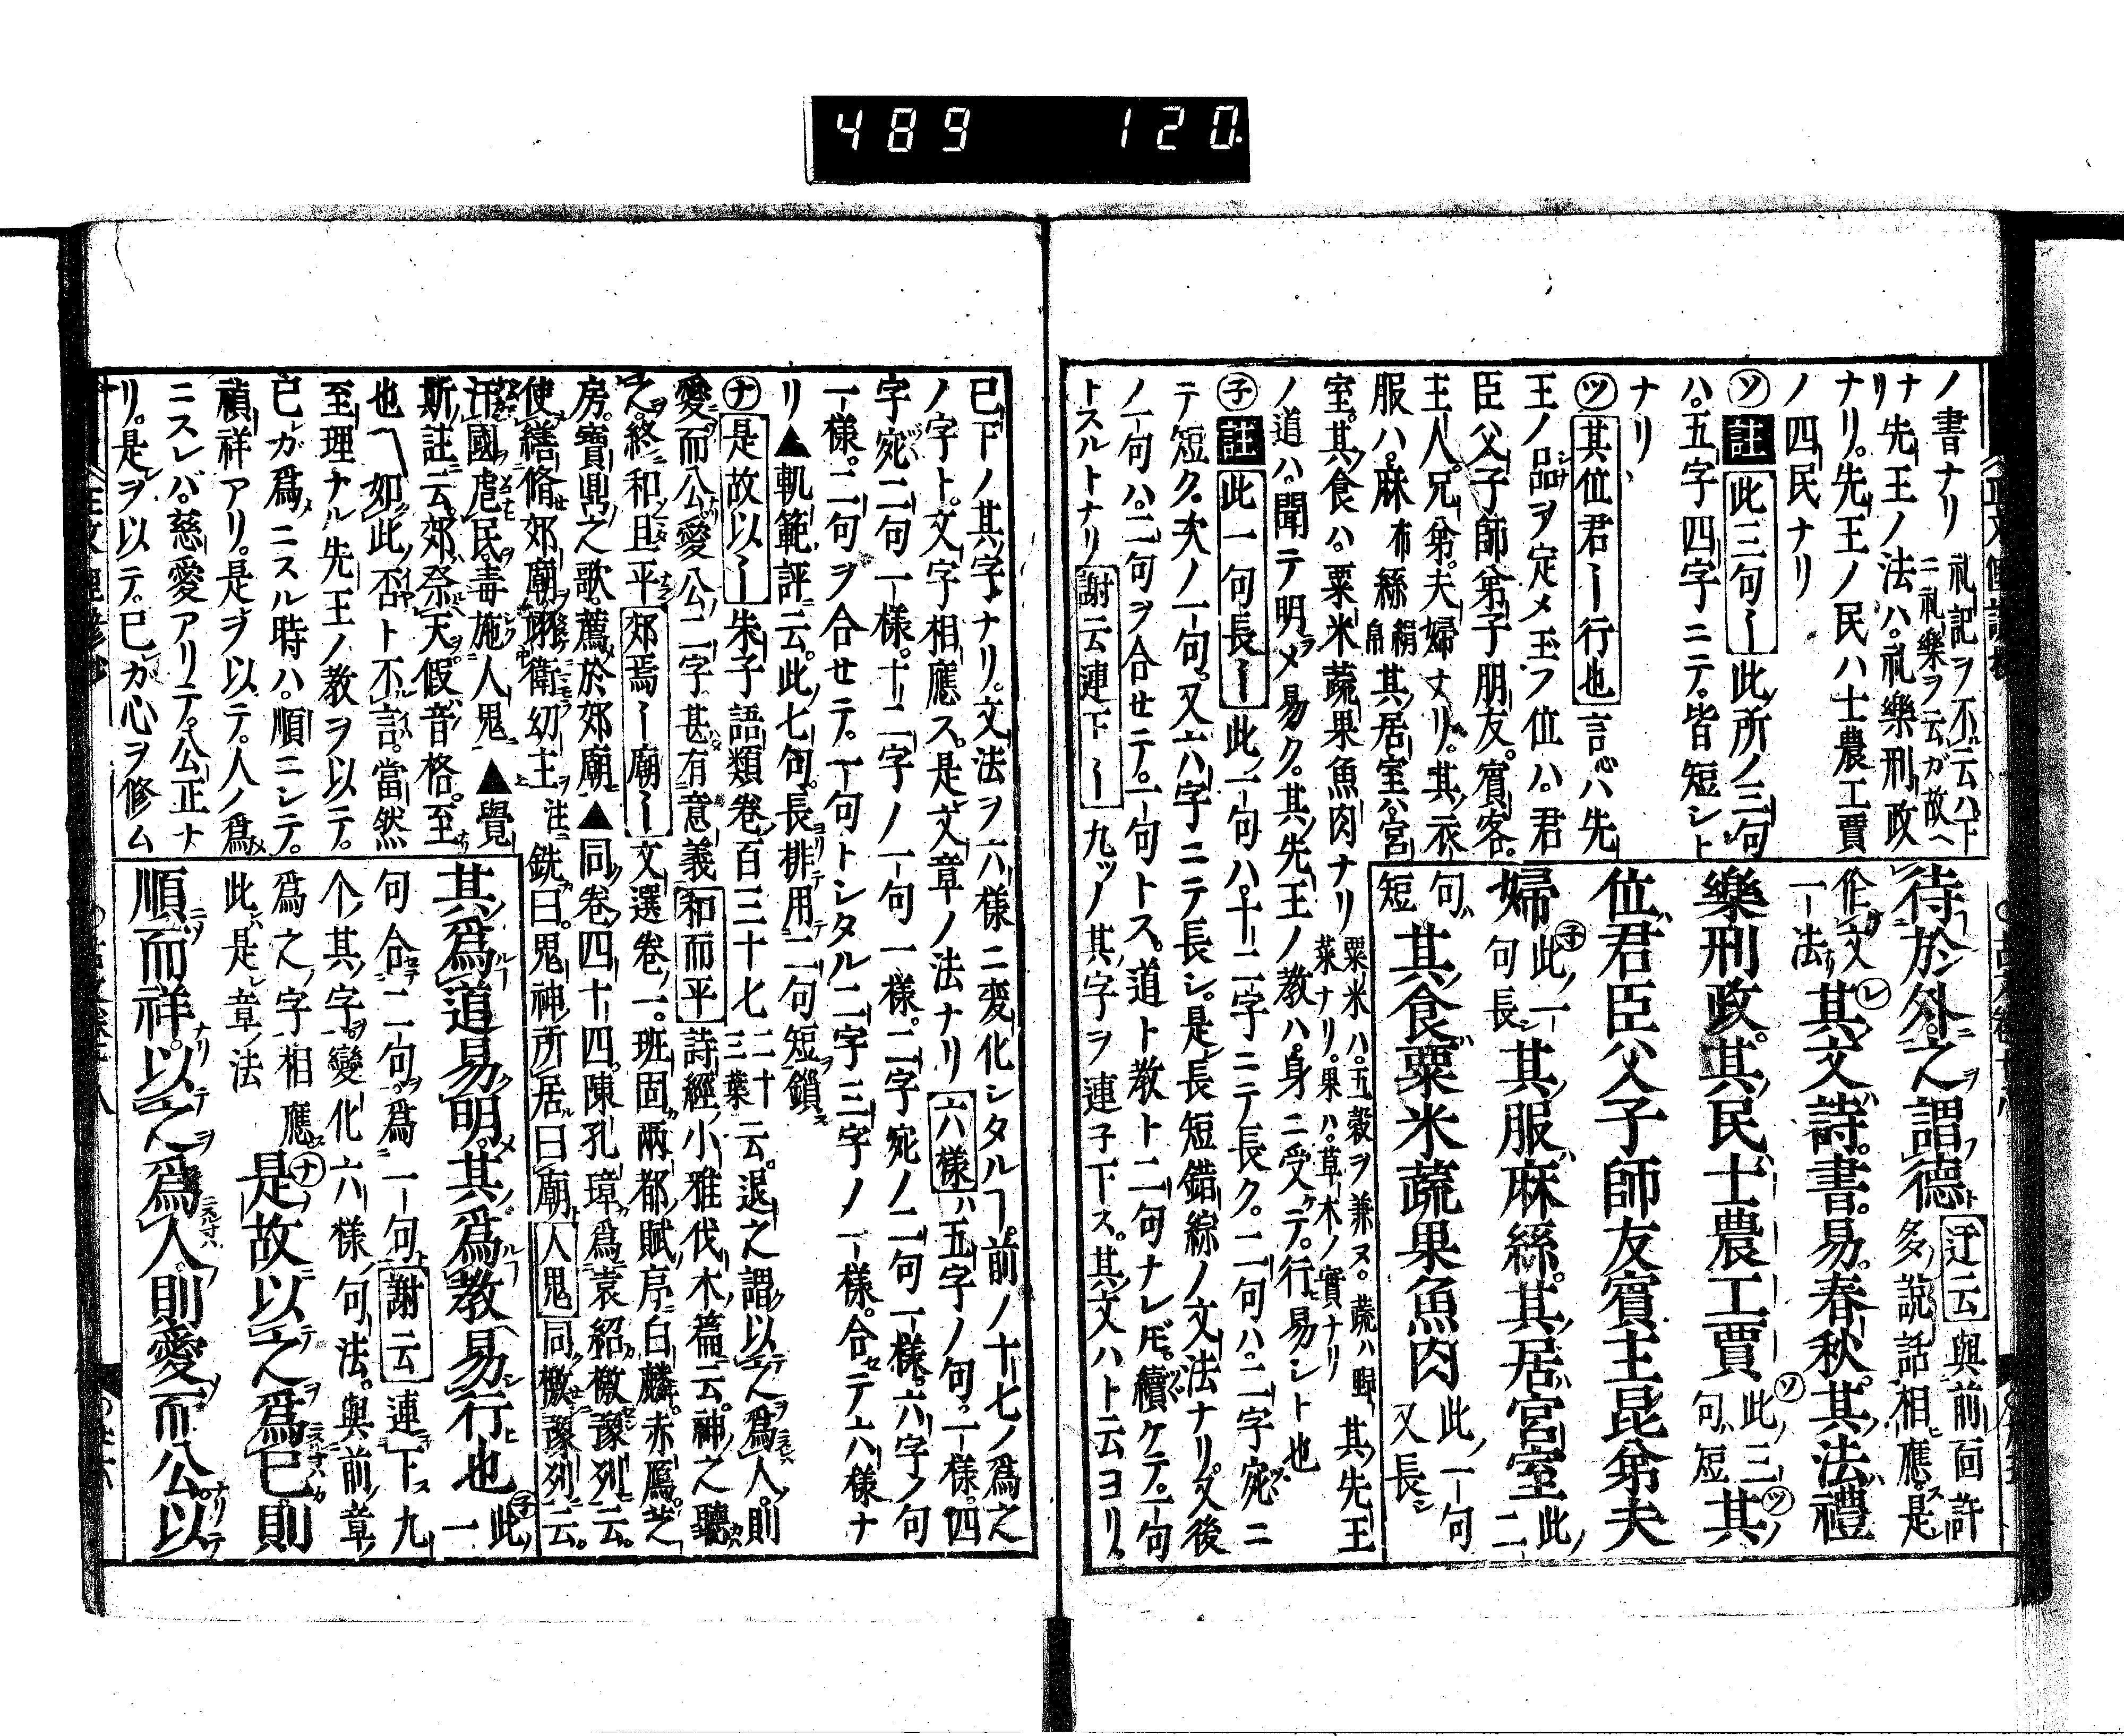 489 120
ノ書ナリ 礼記ヲ不云ハ下
ニ礼樂ヲ云ガ故ヘ
ナリ 先王ノ法ハ礼樂刑政
ナリ。先王ノ民ハ士農工賈
ノ四民ナリ
ソ 註 此三句〡 此所ノ三句
ハ。五字四字ニテ。皆短シト
ナリ
ツ 其位君〡行也 言心ハ先
王ノ品ヲ定メ玉フ位ハ。君
臣父子師弟子朋友。賓客。
主人。兄弟。夫婦ナリ。其衣
服ハ。麻布絲絹帛 其居室ハ宮
室。其食ハ。粟米蔬果魚肉ナリ 粟米ハ。五穀ヲ兼ヌ。蔬ハ野
菜ナリ。果ハ。草木ノ實ナリ 其先王
ノ道ハ。聞テ明メ易ク。其先王ノ教ハ。身ニ受テ。行易シト也
子 註 此一句長〡 此一句ハ。十二字ニテ長ク。二句ハ。二字宛ニ
テ短ク。次ノ一句。又六字ニテ長シ。是長短錯綜ノ文法ナリ。又後
ノ一句ハ。二句ヲ合セテ。一句トス。道ト教ト二句ナレ𪜈。續ケテ。一句
トスルトナリ 謝云連下〡 九ツノ其字ヲ連子下ス。其文ハト云ヨリ。
待於外之謂德 迂云 與前面許
多說話相應。是
作文
一法 其文詩。書。易。春秋。其法禮
樂刑政。其民士農工賈 此三
句短 其
位君臣父子師友賓主昆弟夫
婦 此一
句長 其服麻絲。其居宮室 此二
句
短 其食粟米蔬果魚肉 此一句
又長
已下ノ其字ナリ。文法ヲ六樣ニ変化シタルヿ。前ノ十七ノ爲之
ノ字ト。文字相應ス。是文章ノ法ナリ 六樣 ハ五字ノ句。一樣。四
字宛二句一樣。十二字ノ一句一樣。二字宛ノ二句一樣。六字ノ句
一樣。二句ヲ合セテ。一句トシタル二字三字ノ一樣。合テ六樣ナ
リ▲軌範評云。此七句。長排用二句短鎖
ナ 是故以〡 朱子語類卷百三十七 二十
三葉 云。退之謂以之爲人。則
愛而公愛公二字甚有意義 和而平 詩經小雅伐木篇云。神之聽
之。終和且平 郊焉〡廟〡 文選卷一。班固兩都賦序。白麟。赤鴈。芝
房。寶鼎之歌。薦於郊廟▲同卷四十四。陳孔璋爲袁紹檄豫列云。
使繕脩郊廟翊衛幼主 注 銑曰。鬼神所居曰廟 人鬼 同檄豫列云。
汙國虐民。毒施人鬼▲覺
斯註云。郊祭天假音格。至
也〽如此否ト不言。當然
至理ナル先王ノ教ヲ以テ。
已ガ爲ニスル時ハ。順ニシテ。
禎祥アリ。是ヲ以テ。人ノ爲
ニスレバ。慈愛アリテ。公正ナ
リ。是ヲ以テ。已ガ心ヲ修ム
其爲道易明。其爲教易行也 此
一
句合二句爲一句 謝云 連下九
个其字。變化六樣句法。與前章
爲之字相應
此是章法 是故以之爲已則
順而祥。以之爲人。則愛而公。以